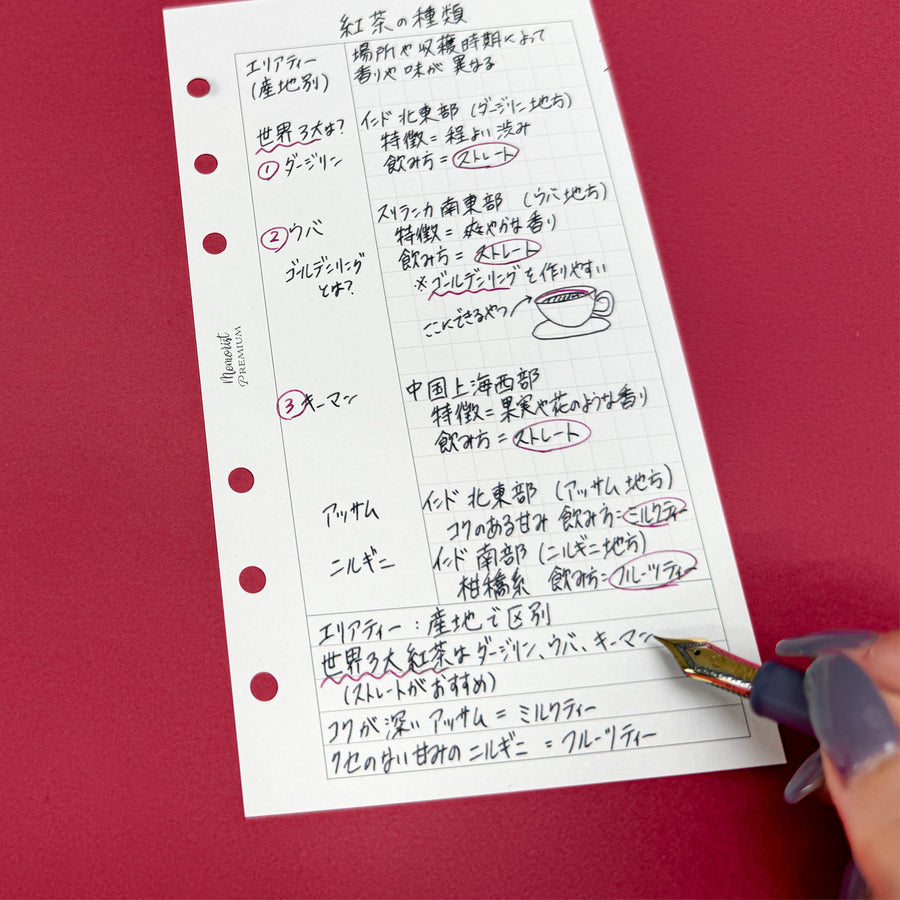 紅茶の種類
エリアティー
(産地別)
場所や収穫時期によって
香りや味が異なる
世界3大は?
① ダージリン
インド北東部 (ダージリン地方)
特徴=程よい渋み
飲み方=ストレート
② ウバ
ゴールデンリング
とは?
スリランカ南東部 (ウバ地方)
特徴=爽やかな香り
飲み方=ストレート
※ゴールデンリングを作りやすい
ここにできるやつ
③ キーマン
中国上海西部
特徴=果実や花のような香り
飲み方=ストレート
アッサム
インド北東部 (アッサム地方)
コクのある甘み 飲み方=ミルクティー
ニルギニ
インド南部 (ニルギニ地方)
柑橘系 飲み方=フルーツティー
エリアティー:産地で区別
世界3大紅茶はダージリン、ウバ、キーマン
(ストレートがおすすめ)
コクが深いアッサム=ミルクティー
クセのない甘みのニルギニ=フルーツティー
Memorist
PREMIUM